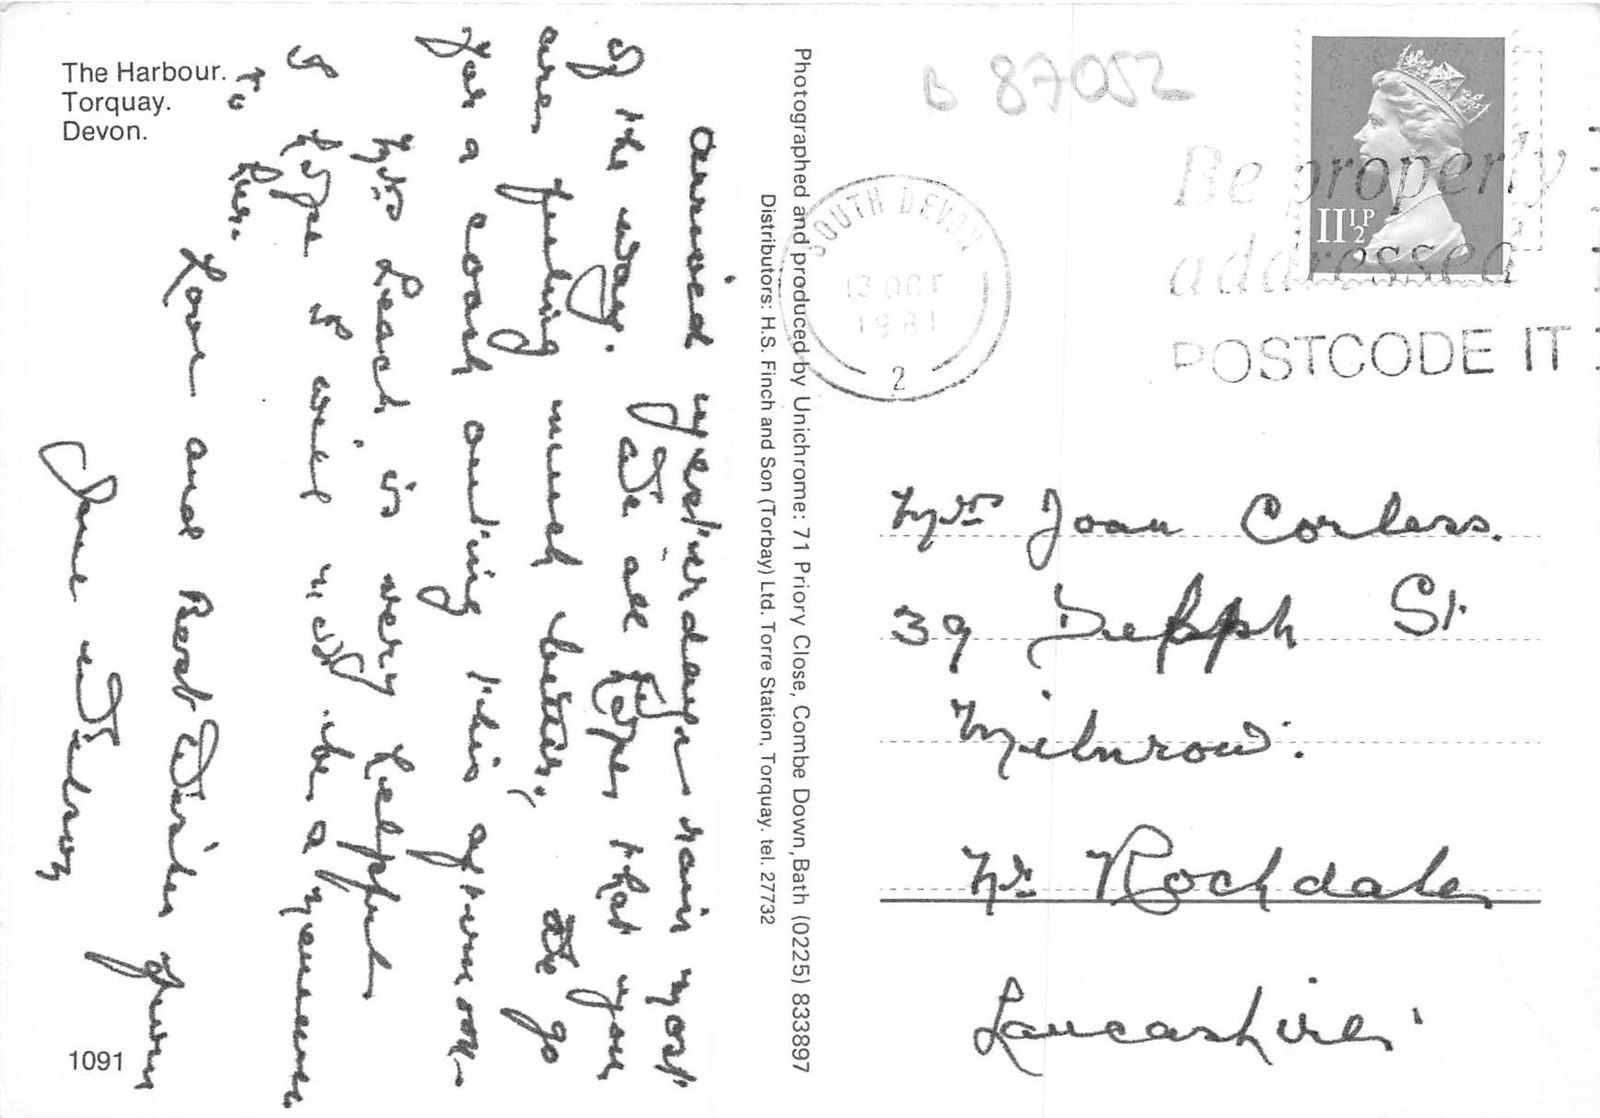 The Harbour.
Torquay.
Devon.
arrived yesterday rain most
of the way. We all hope that you
are feeling much better, We go
for a coach outing this afternoon.
Mrs Leach is very helpful
I hope I will not be a
to her.
Love and Best Wishes from
Jane Wilson
1091
Photographed and produced by Unichrome: 71 Priory Close, Combe Down, Bath (0225) 833897
Distributors: H.S. Finch and Son (Torbay) Ltd. Torre Station, Torquay. tel. 27732
B 87052
SOUTH DEVON
13 OCT
1981
2
Be properly
addressed
POSTCODE IT
11½P
Mrs Joan Corless.
39 St
Milnrow.
Nr Rochdale
Lancashire